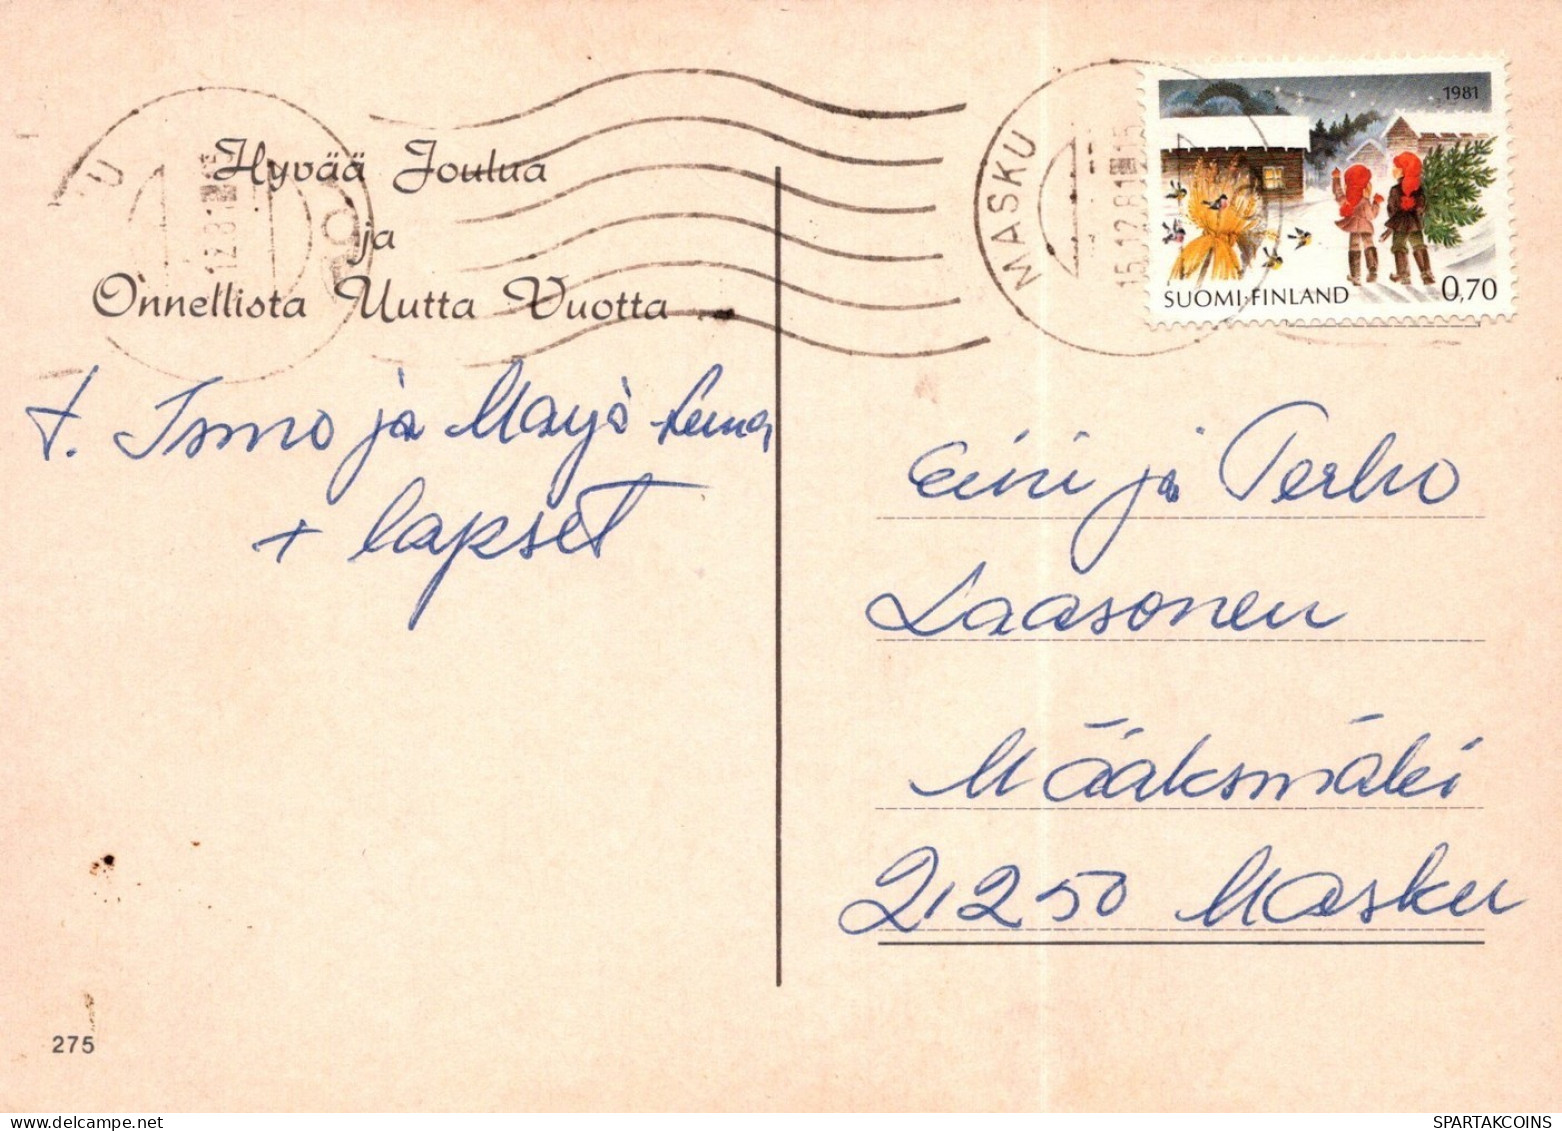 Hyvää Joulua
ja
Onnellista Uutta Vuotta
t. Ismo ja
+ lapset
275
MASKU
15.12.81
1981
SUOMI-FINLAND 0,70
Eini ja Terho
Laasonen
Määksmäki
21250 Masku
www.delcampe.net
SPARTAKCOINS